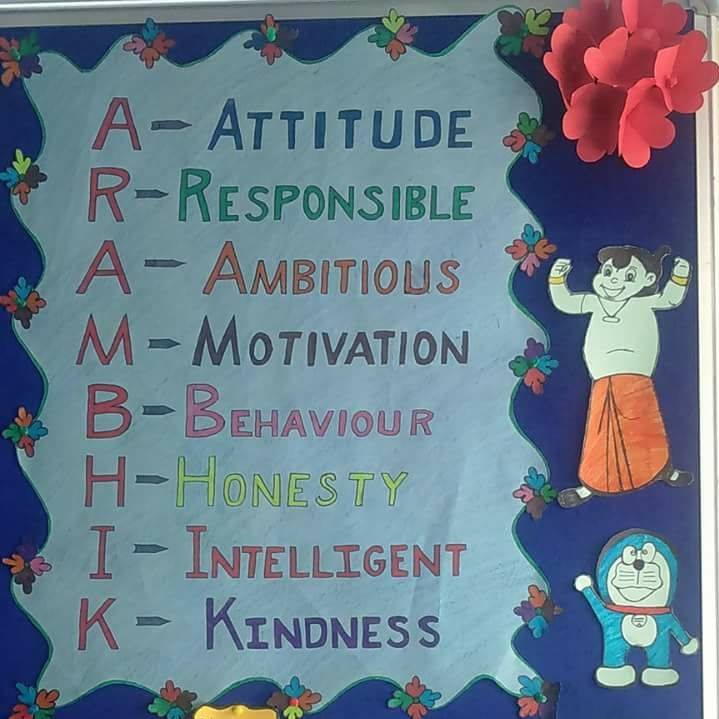 A - ATTITUDE
R - RESPONSIBLE
A - AMBITIOUS
M - MOTIVATION
B - BEHAVIOUR
H - HONESTY
I - INTELLIGENT
K - KINDNESS